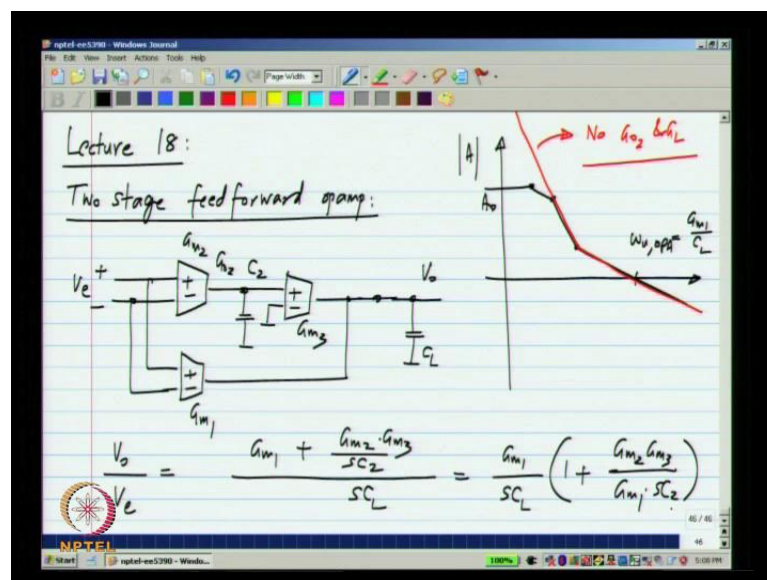 nptel-ee5390 - Windows Journal
File Edit View Insert Actions Tools Help
Page Width
B I
Lecture 18:
Two stage feedforward opamp:
No Go2 & GL
|A|
A0
ωu,opa = Gm1/CL
Gm2
Go2 C2
Vo
Ve + −
+ −
+ −
Gm3
CL
+ −
Gm1
Vo/Ve = (Gm1 + (Gm2 · Gm3)/(SC2))/(SCL) = Gm1/(SCL) (1 + (Gm2 Gm3)/(Gm1 · SC2))
46 / 46
46
NPTEL
Start
nptel-ee5390 - Windo...
100%
5:08 PM